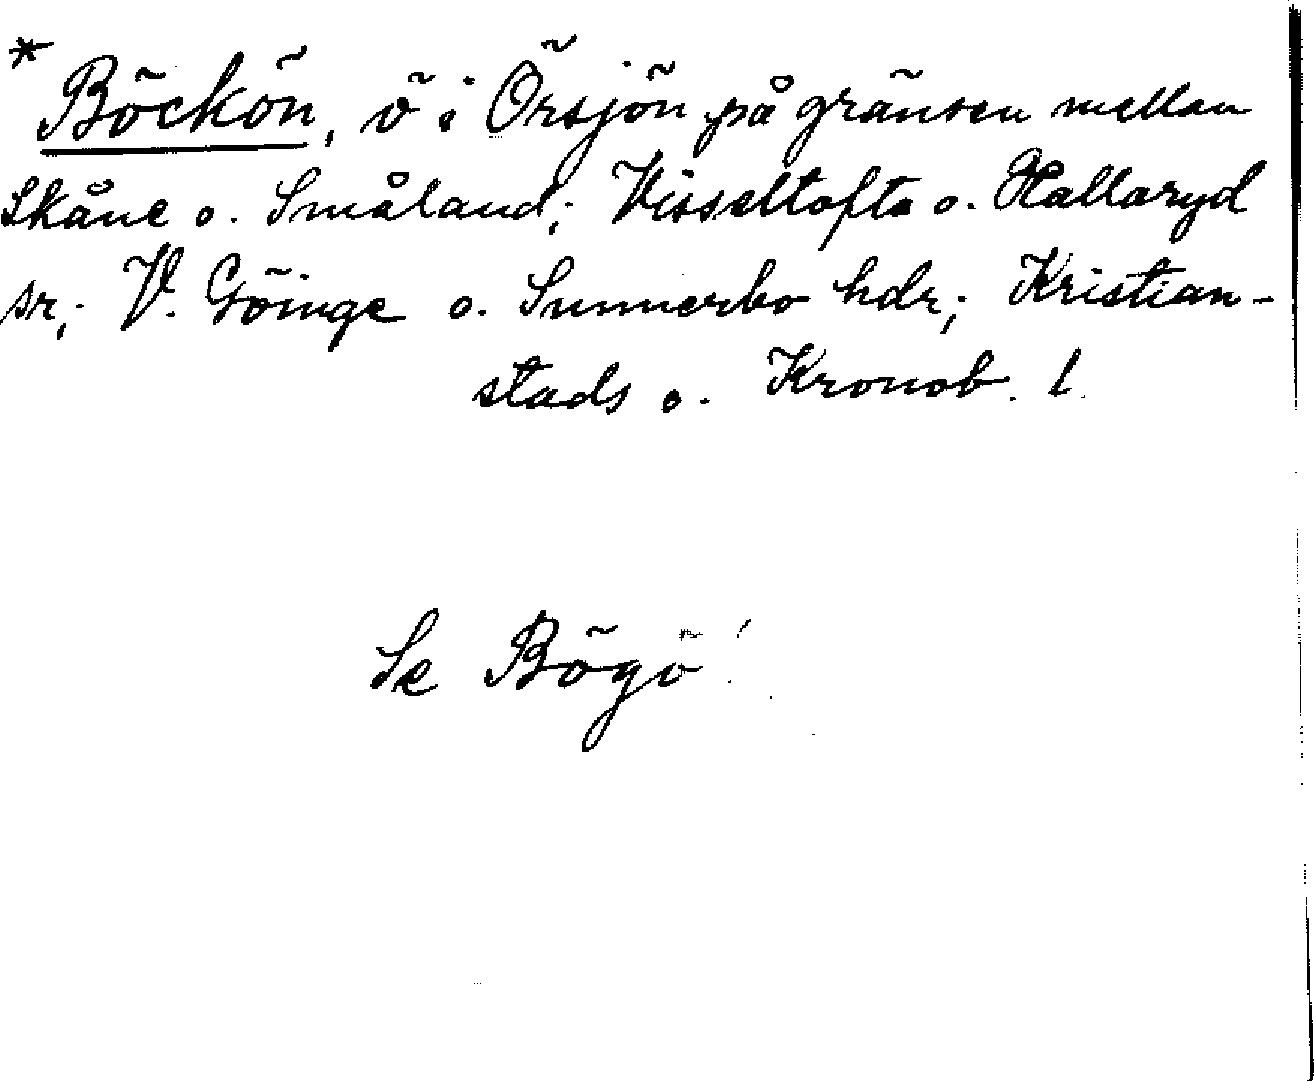 * Böckön, ö i Örsjön på gränsen mellan
Skåne o. Småland; Visseltofta o. Hallaryd
sr; V. Göinge o. Sunnerbo hdr; Kristian-
stads o. Kronob. l.
Se Bögö!